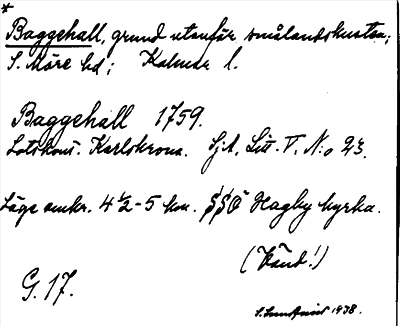 *
Baggehall, grund utanför smålandskusten;
S. Möre hd; Kalmar l.
Baggehall 1759.
Lotskont. Karlskrona. Sjk. Litt. V. N:o 23.
Läge omkr. 4 1/2-5 km. SSO Hagby kyrka.
(Vänd!)
G. 17.
1938.